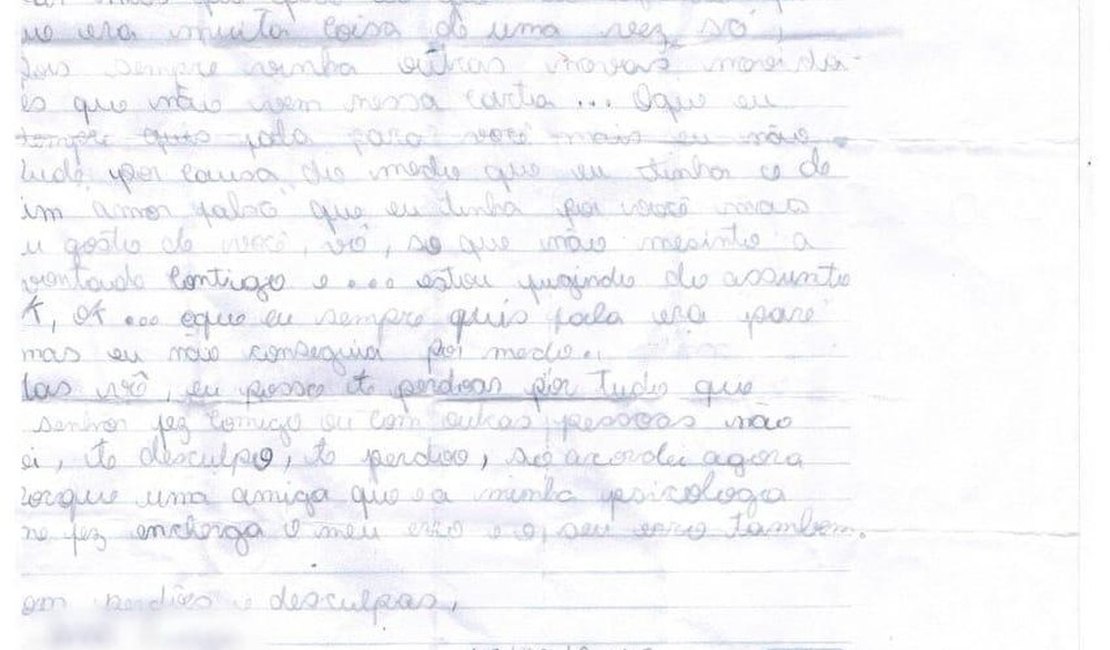 ue era muita coisa de uma veez só,
pois sempre vinha outras novas novida-
es que não vem nessa carta... Oque eu
sempre quis fala para você mais eu não
tudo por causa do medo que eu tinha e do
um amor falso que eu tinha por você mais
u gosto de você, vô, so que não mesinto a
vontade contigo e .... estou fugindo do assunto
k, ok ... oque eu sempre quis fala era pare
mas eu não conseguia por medo..
Mas vô, eu posso te perdoas por tudo que
senhor fez comigo ou com outras pessoas não
ei, te desculpo, te perdoo, só acordei agora
orque uma amiga que e a minha psicologa
me fez encherga o meu erro e o seu erro tambem.
om perdões e desculpas,